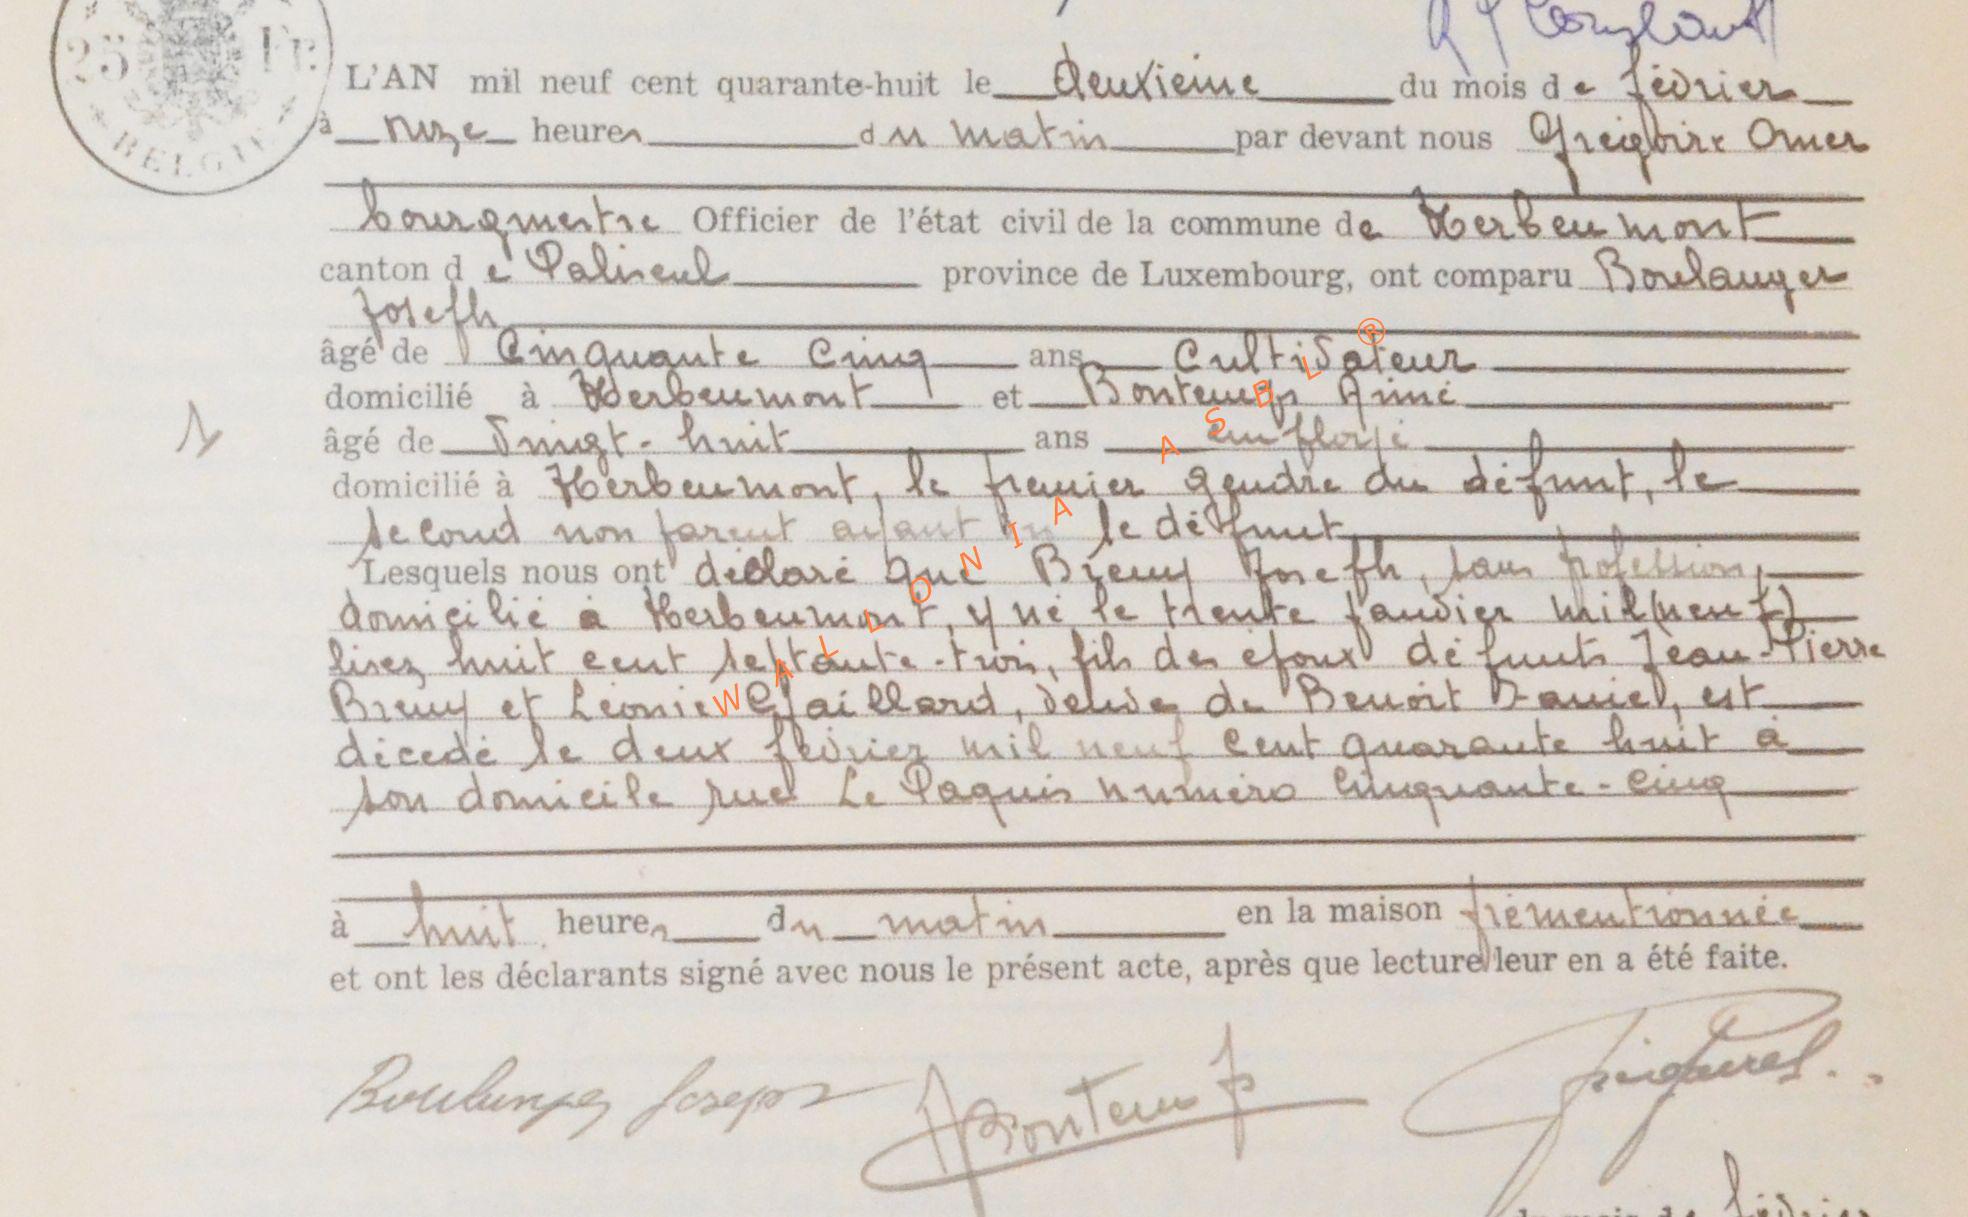 25 Fr.
BELGIE
L'AN mil neuf cent quarante-huit le deuxième du mois de février
à onze heures du matin par devant nous Grégoire Omer
bourgmestre Officier de l'état civil de la commune de Herbeumont
canton de Paliseul province de Luxembourg, ont comparu Boulanger
Joseph
âgé de Cinquante Cinq ans Cultivateur
domicilié à Herbeumont et Bontemps Aimé
âgé de vingt-huit ans employé
domicilié à Herbeumont, le premier gendre du défunt, le
second non parent ayant vu le défunt
Lesquels nous ont déclaré que Breuy Joseph, sans profession,
domicilié à Herbeumont, y né le trente janvier mil (neuf)
lisez huit cent septante-trois, fils des époux défunts Jean-Pierre
Breuy et Léonie Gfaillard, veuve de Benoit Daniel, est
décédé le deux février mil neuf cent quarante huit à
son domicile rue Le Paquis numéro Cinquante-Cinq
à huit heures du matin en la maison prémentionnée
et ont les déclarants signé avec nous le présent acte, après que lecture leur en a été faite.
Boulanger Joseph
A Bontemps
WALLONIA ASBL ®
février